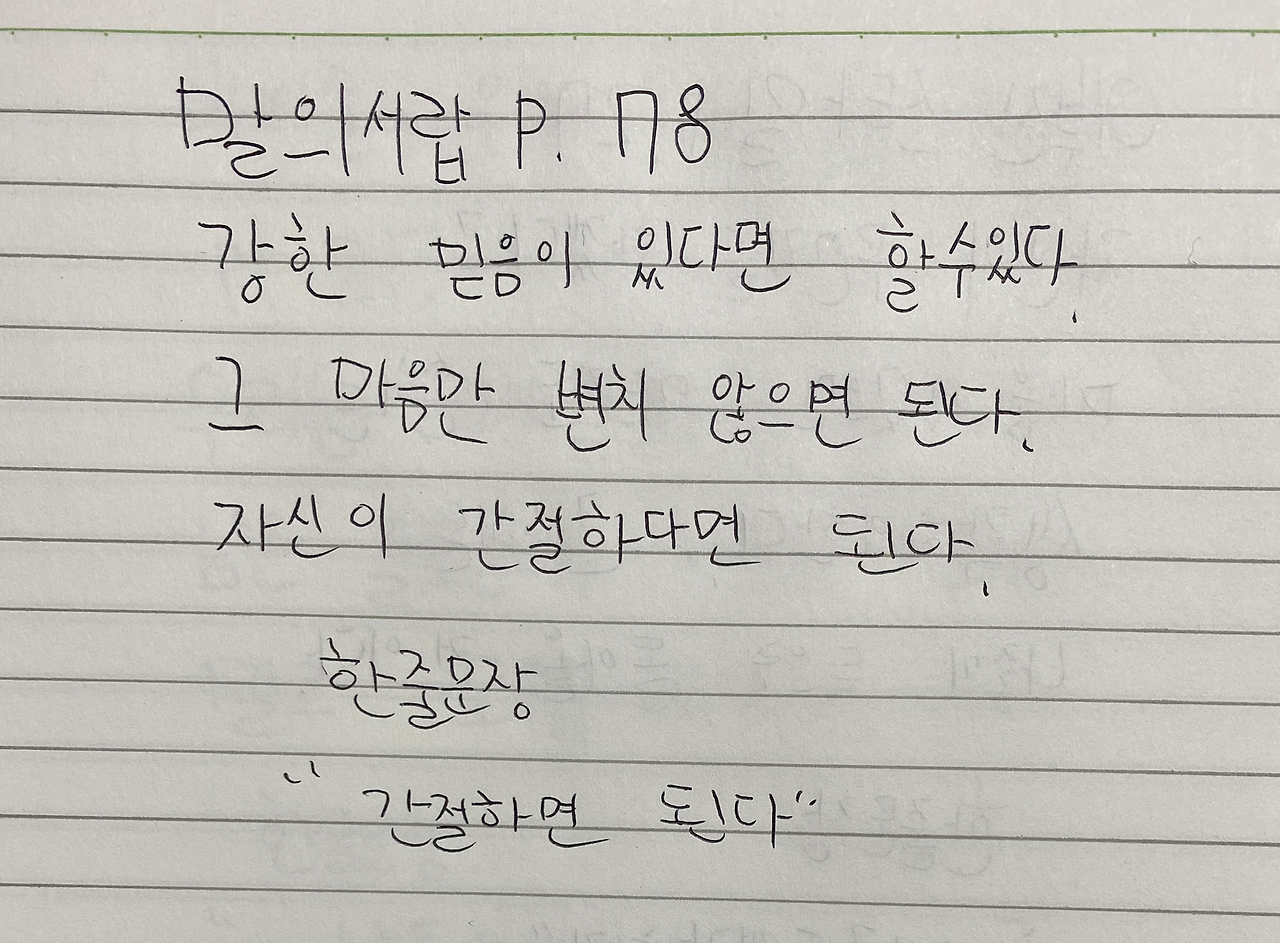 말의서랍 P. 178
강한 믿음이 있다면 할수있다.
그 마음만 변치 않으면 된다.
자신이 간절하다면 된다.
한줄문장
"간절하면 된다"